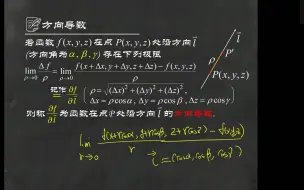 方向导数
若函数 f(x,y,z) 在点 P(x,y,z) 处沿方向 l
(方向角为 α, β, γ) 存在下列极限
lim ρ→0 Δf/ρ = lim ρ→0 [f(x+Δx, y+Δy, z+Δz) − f(x,y,z)]/ρ
记作 ∂f/∂l ( ρ=√((Δx)²+(Δy)²+(Δz)²),
Δx=ρcosα, Δy=ρcosβ, Δz=ρcosγ )
则称 ∂f/∂l 为函数在点P处沿方向 l 的方向导数.
l
ρ
P′
P(x,y,z)
lim r→0 [f(x+rcosα, y+rcosβ, z+rcosγ) − f(x,y,z)]/r
l = (cosα, cosβ, cosγ)